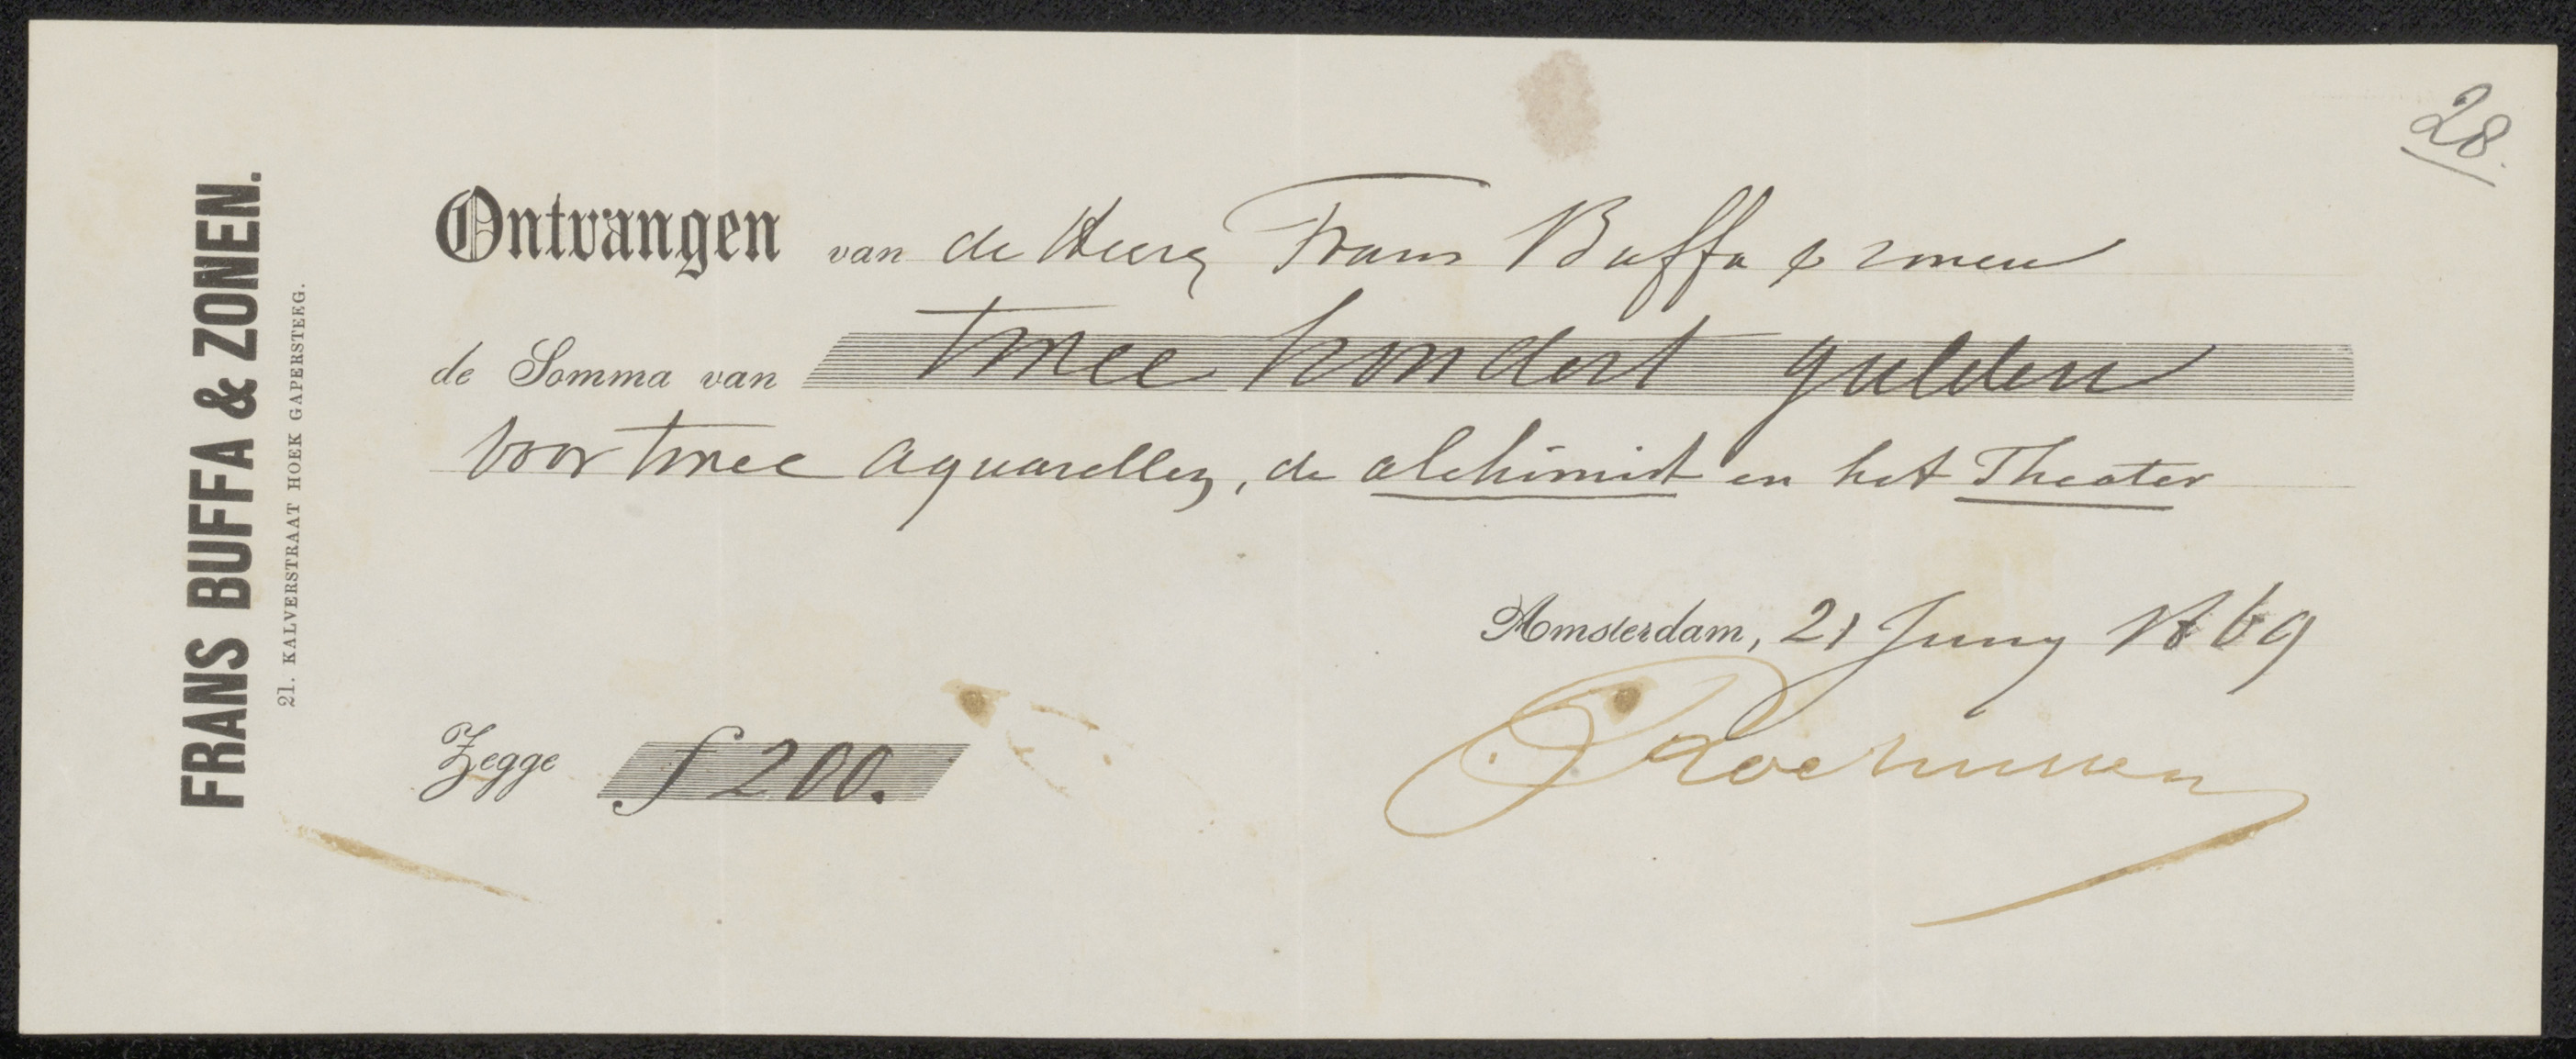 28.
FRANS BUFFA & ZONEN.
21. KALVERSTRAAT HOEK GAPERSTEEG.
Ontvangen van de Heeren Frans Buffa & zonen
de Somma van twee hondert gulden
voor twee aquarellen, de alchimist en het Theater
Amsterdam, 21 Juny 1869
Zegge f 200.
Rochussen